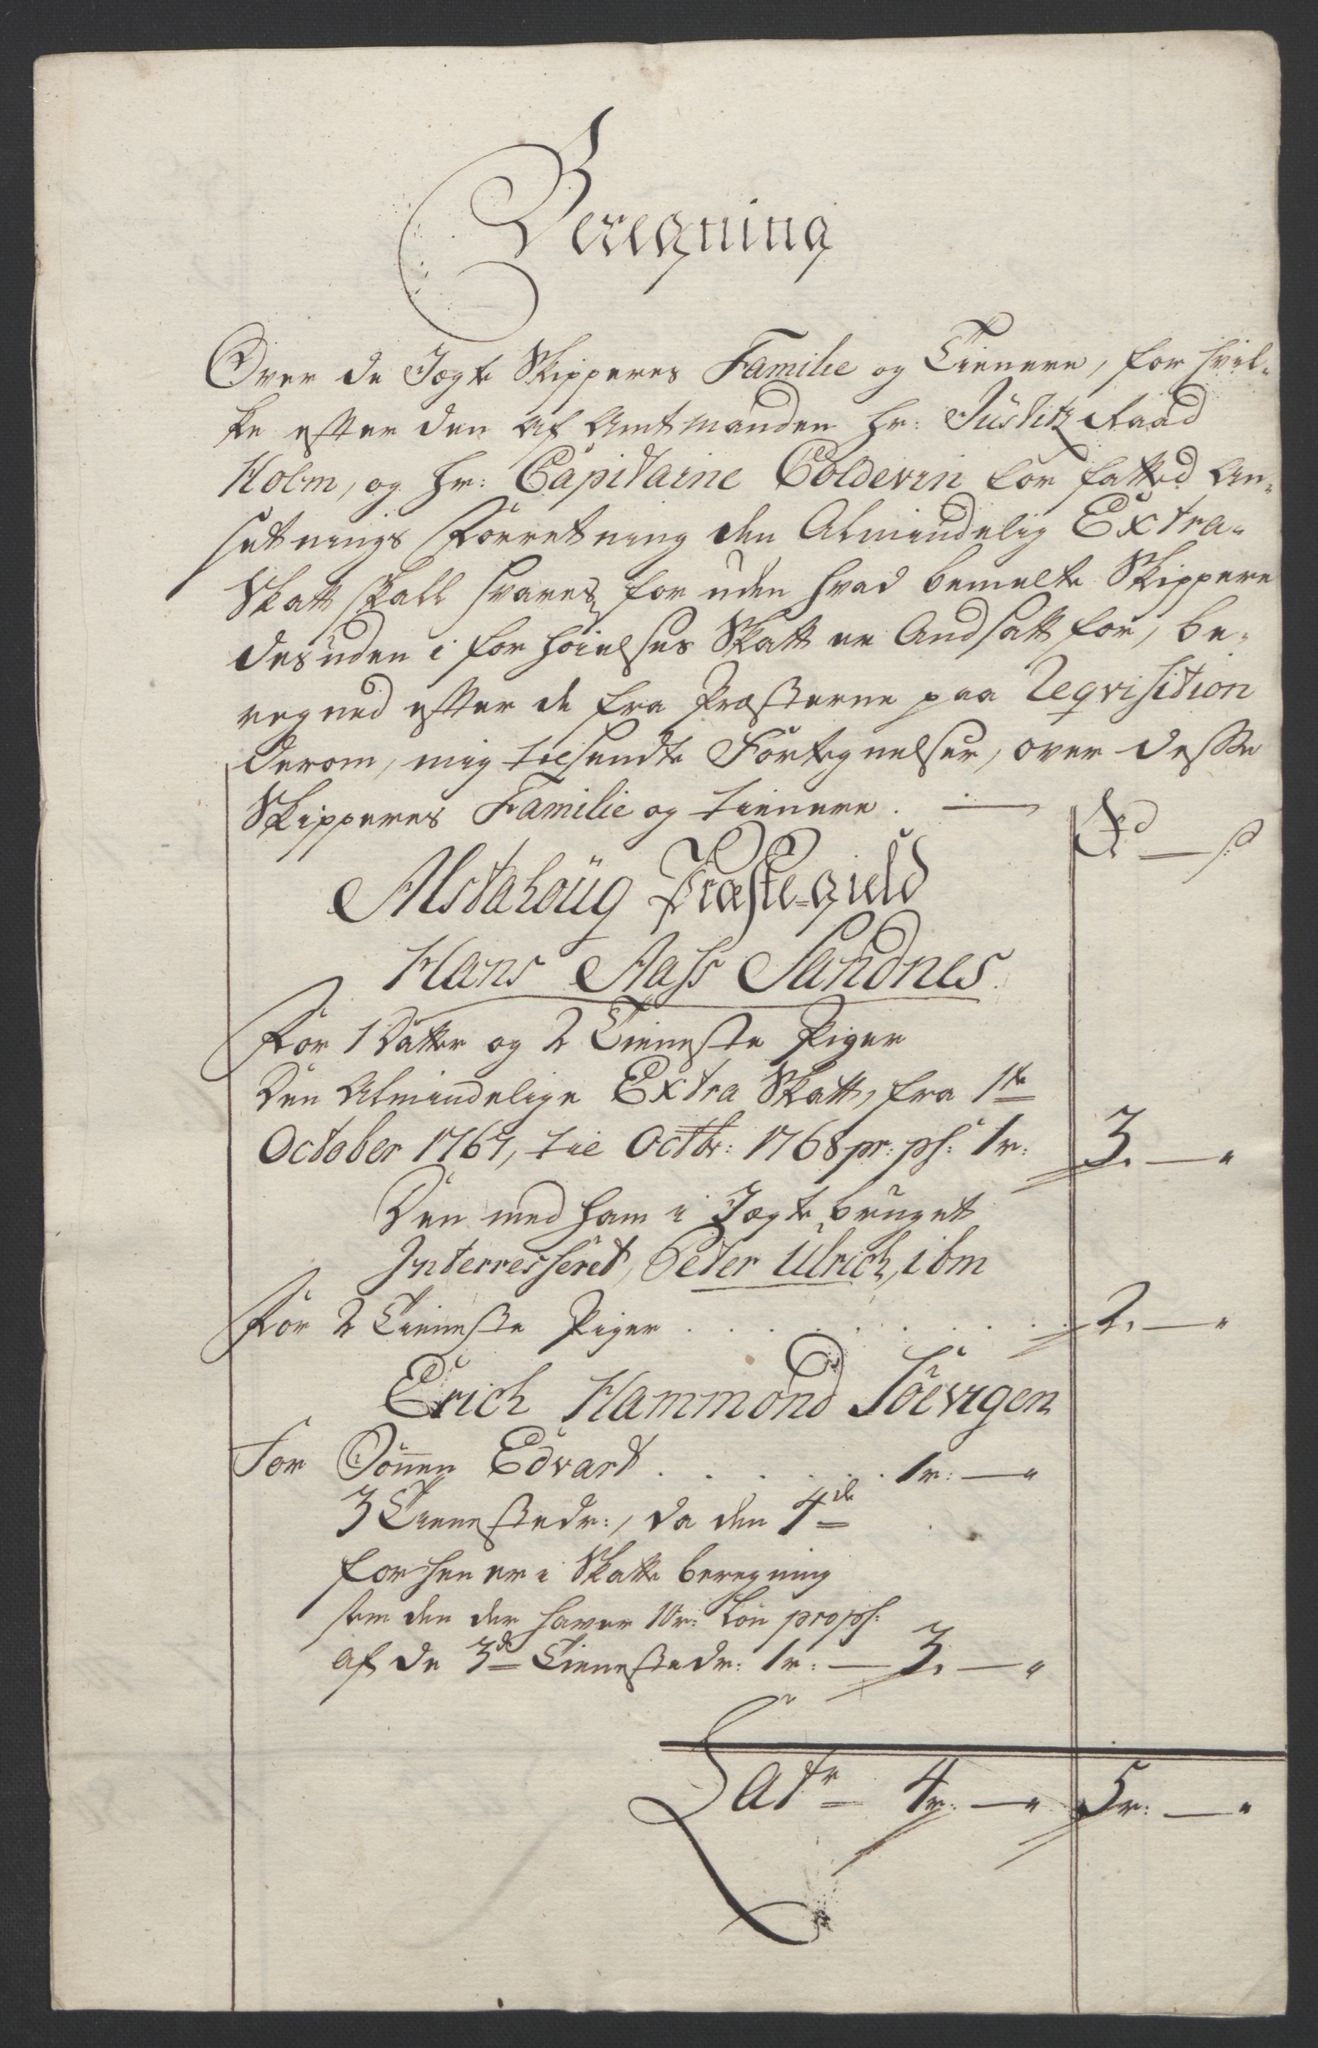 Beregning
Over de Jægt Skipperes Familie og Tienere, for hvil-
ke efter den af Amtmanden Hr: Justitz Raad
Holm, og Hr: Capitaine Coldevin for fatted An-
sætnings Forretning den Almindelig Extra-
Skatt skall svares, for uden hvad bemelte Skippere
desuden i for høielses Skatt er Andsatt for, be-
regned efter de fra Præsterne paa Reqvisition
derom, mig til sendte Fortegnelser, over desse
Skipperes Familie og tienere. —
Rd — s
Alstahoüg Præste-gield
Hans Aass Sandnes.
For 1 Datter og 2 Tieneste Piger
Den Almindelige Extra Skatt, fra 1te
October 1767, til Octbr: 1768 pr: ps: 1r: 3. — "
Den med ham i Jægte bruget
Interresseret, Peter Ulrich, ibm
For 2 Tieneste Piger . . . . . . . 2. — "
Erich Hammond Töevigen
For Sønnen Edvart . . . . . 1r: — "
3 Tienestedr:, da den 4de
forhen er i Skatte beregning
som den der haver 10r: Løn pro ps:
af de 3de Tienestedr: 1r: — 3. — "
Latr 4r: — " 5r: — "